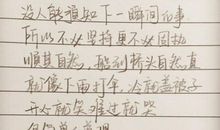 没人能预知下一瞬间的事
所以不必坚持更不必固执
顺其自然，船到桥头自然直
就像下雨打伞，冷就盖被子
开心就笑难过就哭